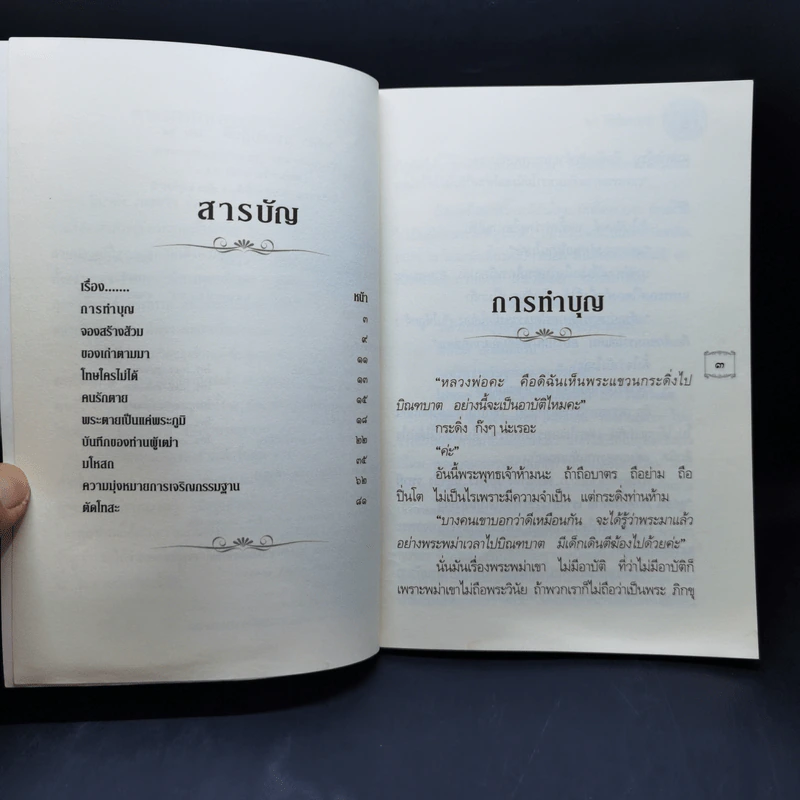 สารบัญ
เรื่อง....... หน้า
การทำบุญ ๓
จองสร้างส้วม ๙
ของเก่าตามมา ๑๑
โทษใครไม่ได้ ๑๓
คนรักตาย ๑๕
พระตายเป็นแค่พระภูมิ ๑๘
บันทึกของท่านผู้เฒ่า ๒๒
มโหสถ ๓๕
ความมุ่งหมายการเจริญกรรมฐาน ๖๒
ตัดโทสะ ๘๑
การทำบุญ
๓
“หลวงพ่อคะ คือดิฉันเห็นพระแขวนกระดิ่งไป
บิณฑบาต อย่างนี้จะเป็นอาบัติไหมคะ”
กระดิ่ง กิ๊งๆ น่ะเรอะ
“ค่ะ”
อันนี้พระพุทธเจ้าห้ามนะ ถ้าถือบาตร ถือย่าม ถือ
ปิ่นโต ไม่เป็นไรเพราะมีความจำเป็น แต่กระดิ่งท่านห้าม
“บางคนเขาบอกว่าดีเหมือนกัน จะได้รู้ว่าพระมาแล้ว
อย่างพระพม่าเวลาไปบิณฑบาต มีเด็กเดินตีฆ้องไปด้วยค่ะ”
นั่นมันเรื่องพระพม่าเขา ไม่มีอาบัติ ที่ว่าไม่มีอาบัติก็
เพราะพม่าเขาไม่ถือพระวินัย ถ้าพวกเราก็ไม่ถือว่าเป็นพระ ภิกขุ